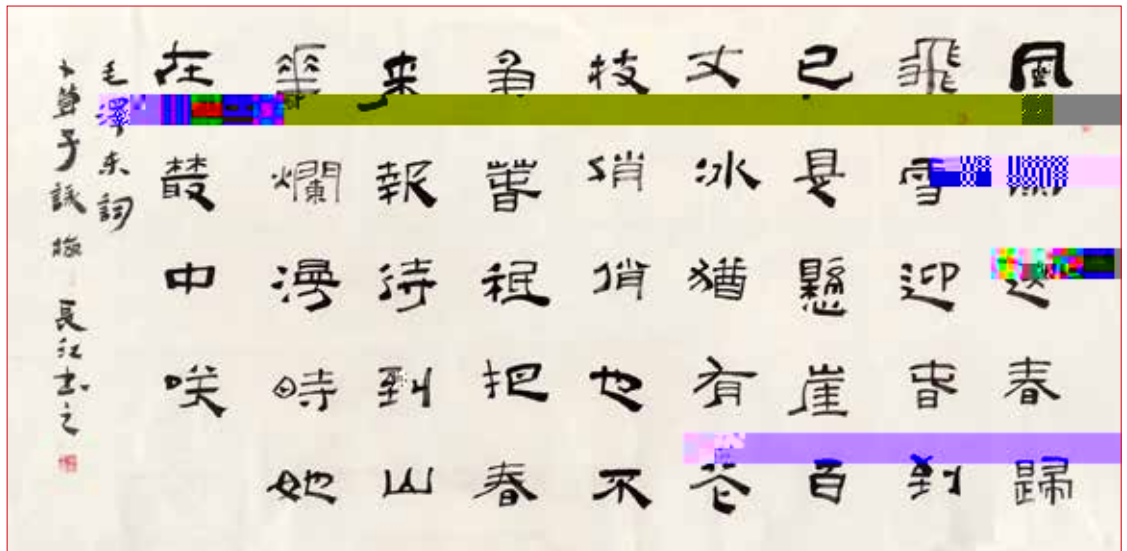 風送春歸
飛雪迎春到
已是懸崖百
丈冰猶有花
枝俏俏也不
爭春秪把春
来報待到山
華爛漫時她
在叢中咲
毛澤东詞
卜算子詠梅 長江书之